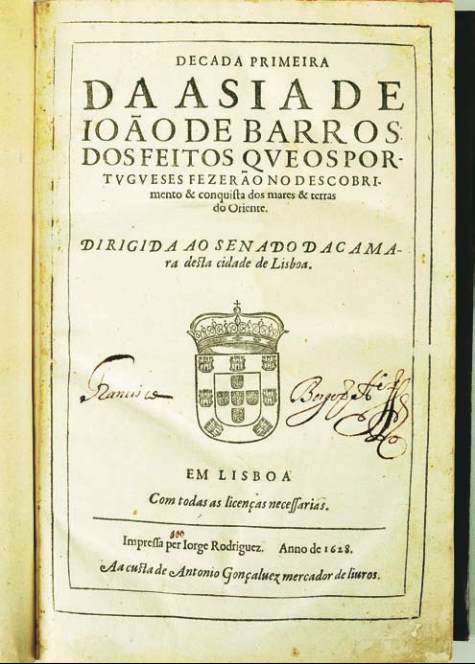 DECADA PRIMEIRA
DA ASIA DE
IOÃO DE BARROS
DOS FEITOS QVE OS POR-
TVGVESES FEZERÃO NO DESCOBRI-
mento & conquiſta dos mares & terras
do Oriente.
DIRIGIDA AO SENADO DA CAMA-
ra deſta cidade de Lisboa.
EM LISBOA
Com todas as licenças neceſſarias.
Impreſſa per Iorge Rodriguez. Anno de 1628.
Aa cuſta de Antonio Gonçaluez mercador de liuros.